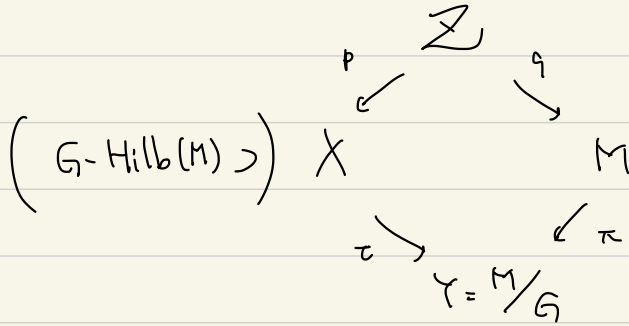 Z
p q
( G-Hilb(M) ⊃ ) X M
τ π
Y = M/G